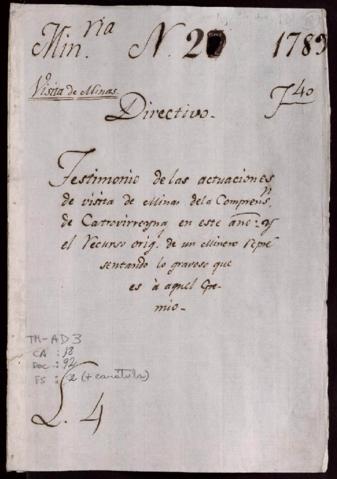 Min.ría N. 20 1789
Visita de Minas.
J40
Directivo.
Testimonio de las actuaciones
de visita de Minas dela Comprens.n
de Castrovirreyna en este año: y
el Recurso orig.l de un Minero repre
sentando lo gravoso que
es à aquel Gre-
mio-
TM-AD3
CA : 18
DOC : 92
FS : 2 (+ carátula)
L. 4